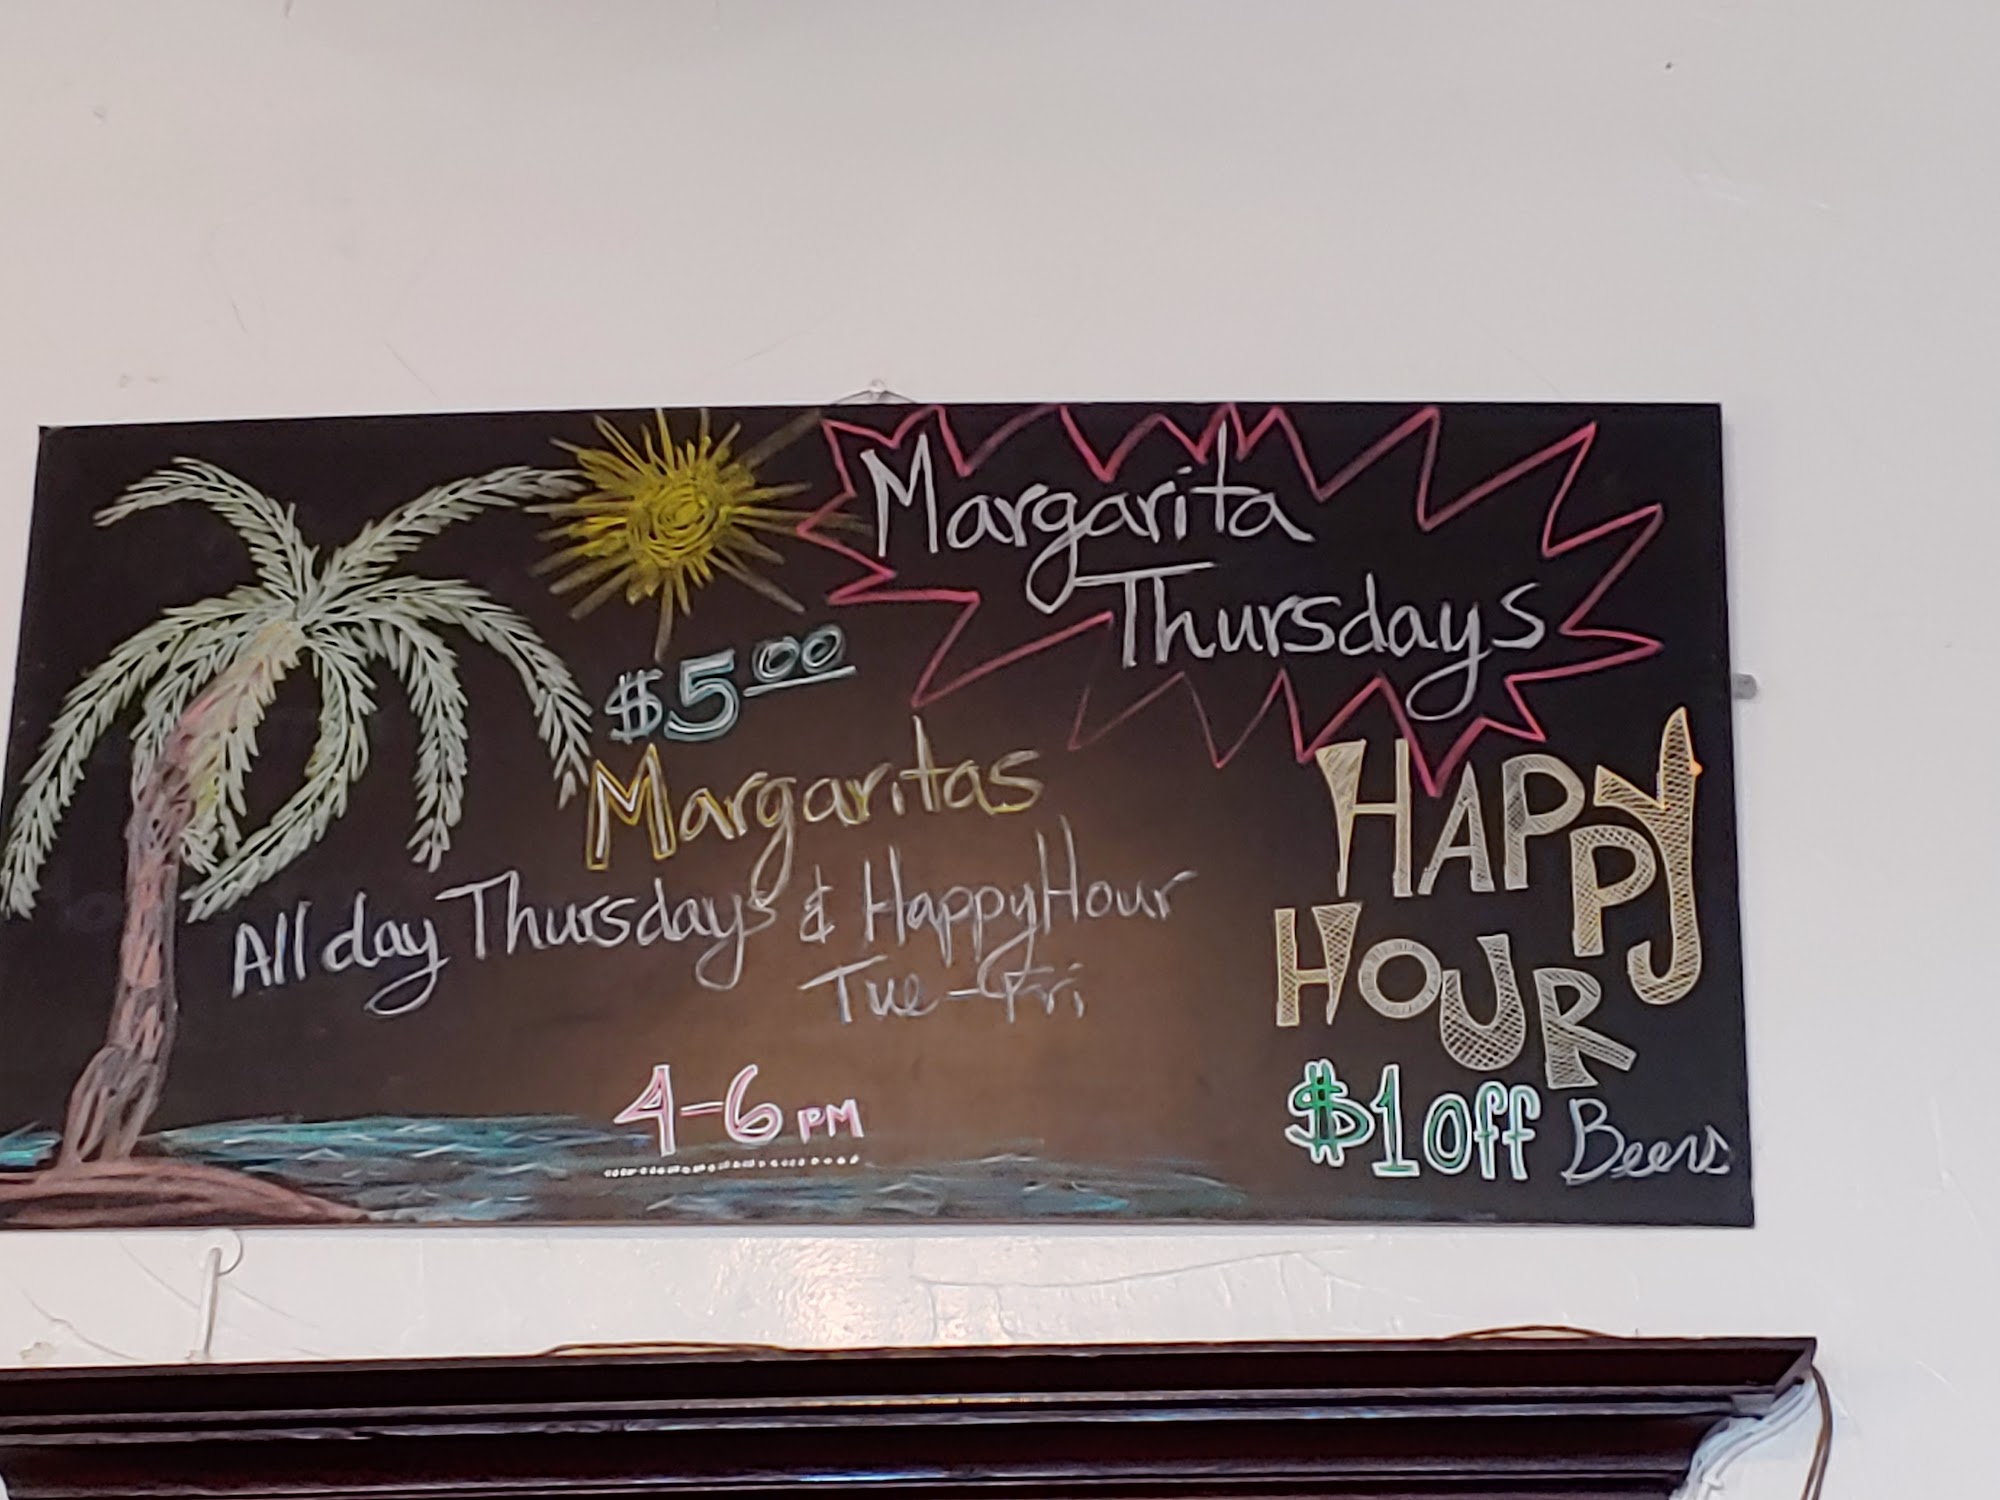 Margarita
Thursdays
$5.00
Margaritas
All day Thursdays & Happy Hour
Tue-Fri
4-6 PM
HAPPY
HOUR
$1 Off Beers